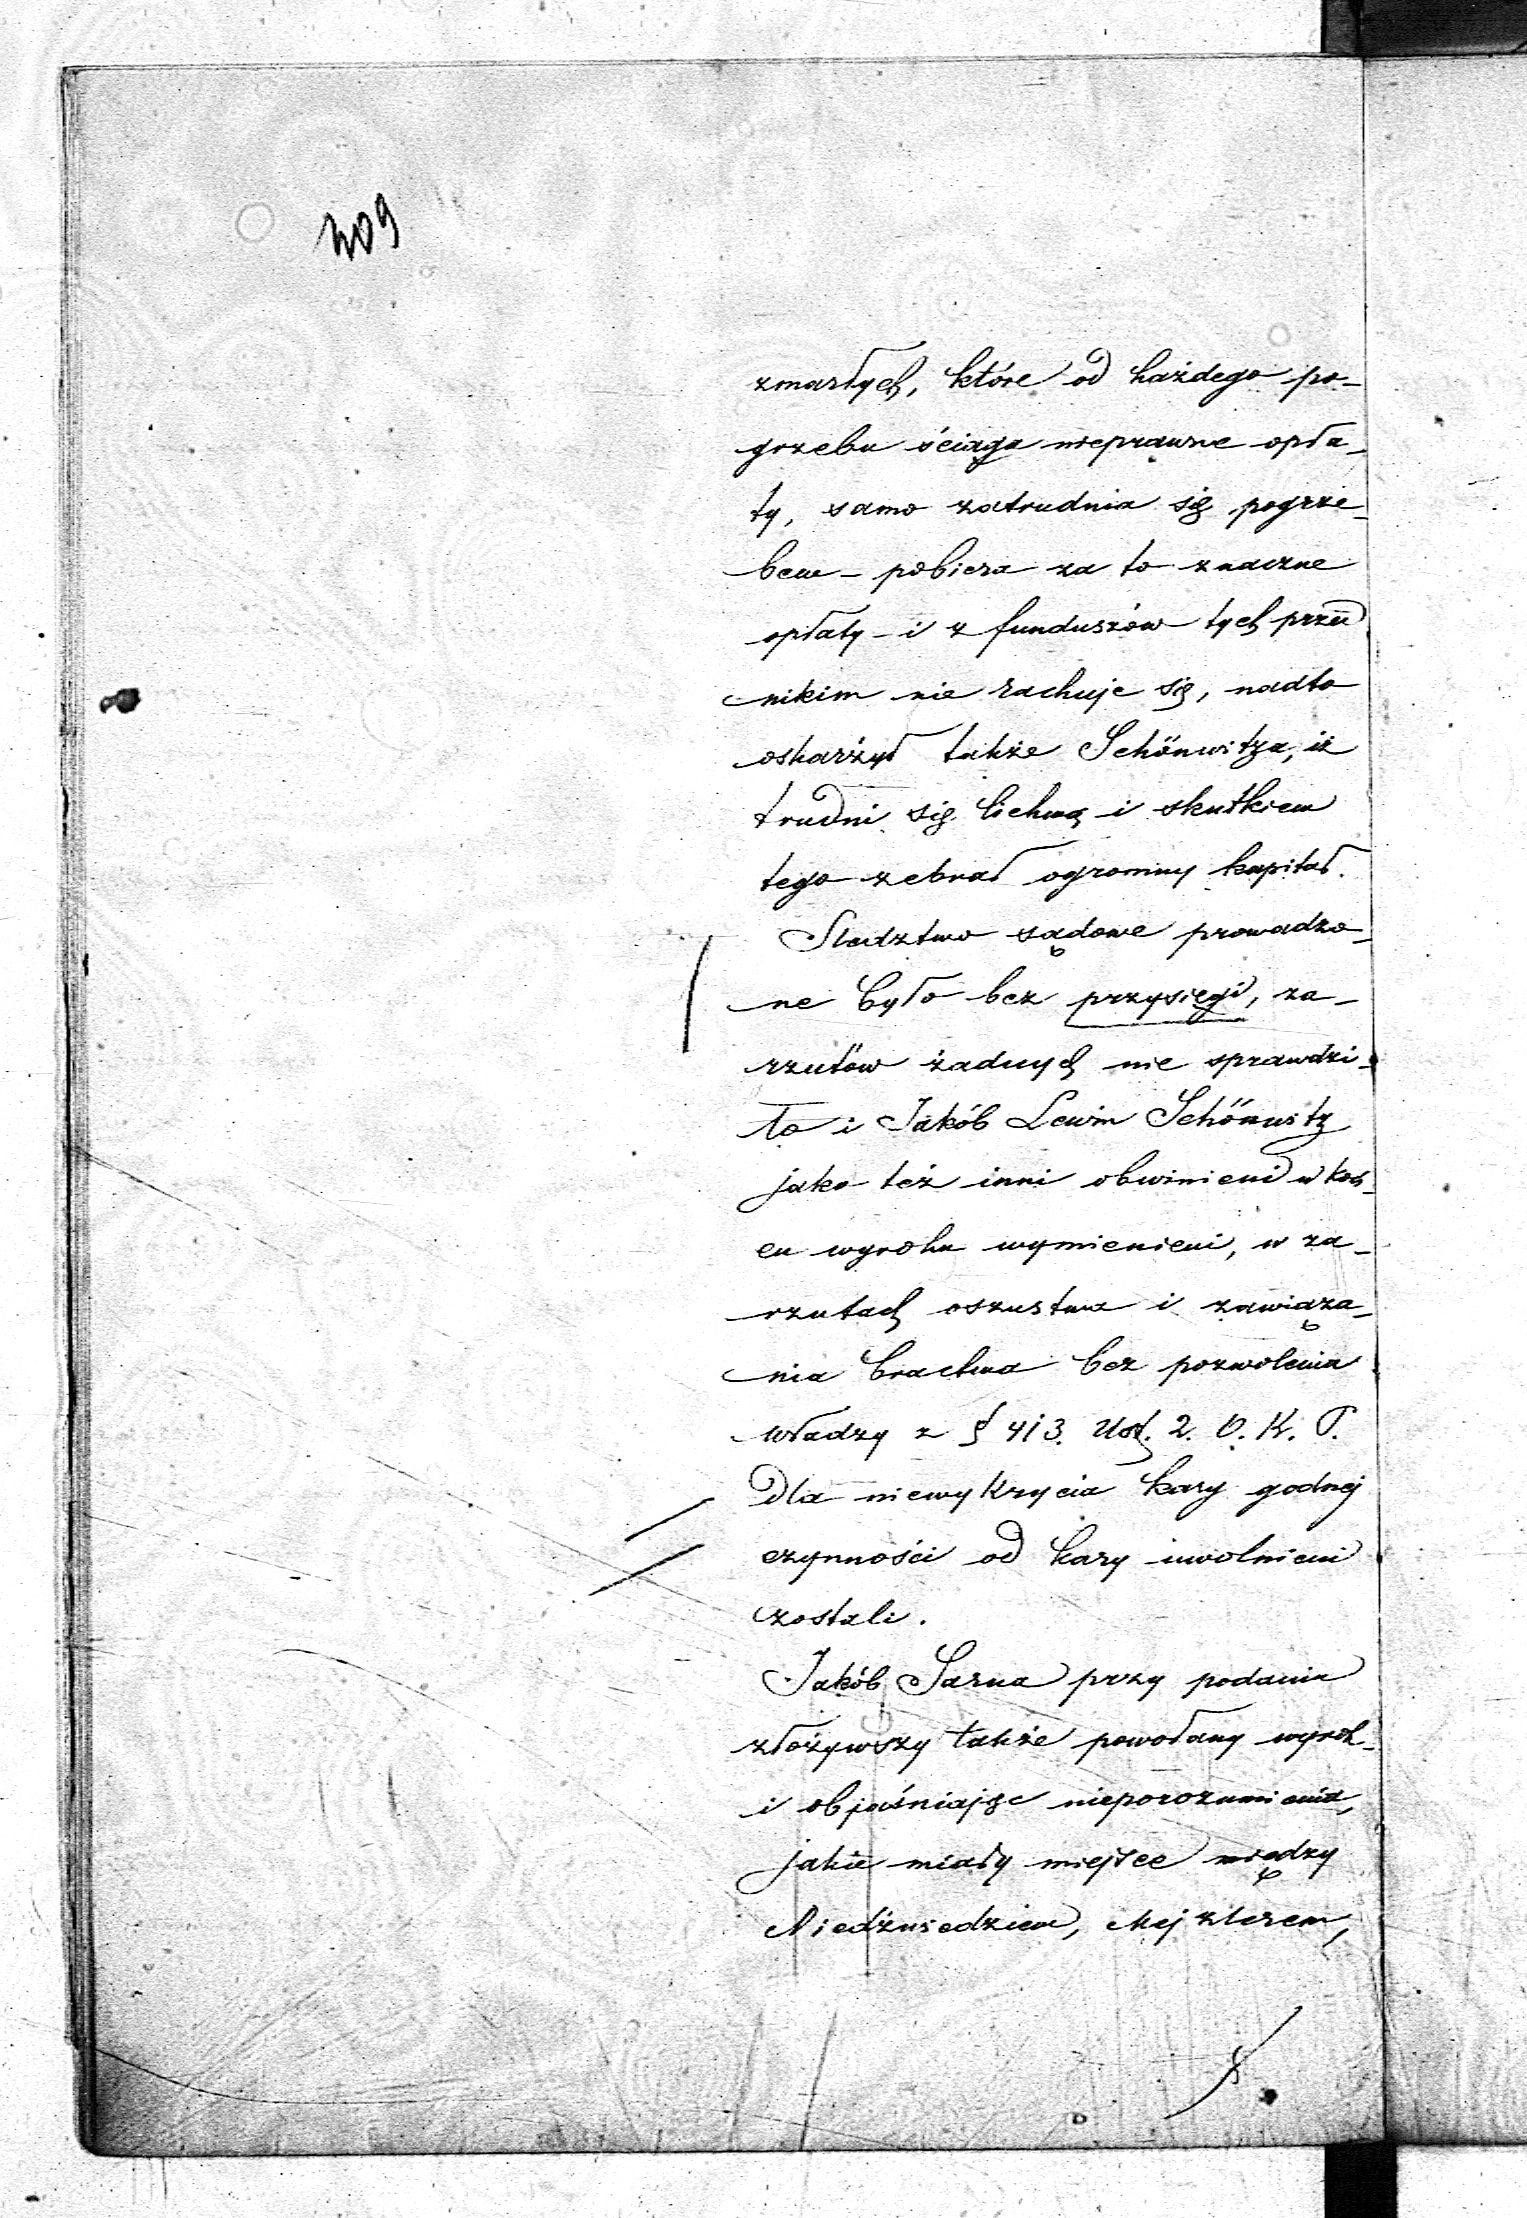 309
zmarłych, które od każdego po-
grzebu ściąga nieprawne opła-
ty, samo zatrudnia się pogrze-
bem - pobiera za to znaczne
opłaty - i z funduszów tych przed
nikim nie rachuje się, nadto
oskarżył także Schönwitza, iż
trudni się lichwą i skutkiem
tego zebrał ogromny kapitał.
Sledztwo sądowe prowadzo-
ne było bez przysięgi, za-
rzutów żadnych nie sprawdzi-
ło i Jakób Lewin Schönwitz
jako też inni obwinieni w koń-
cu wyroku wymienieni, w za-
rzutach oszustwa i zawiąza-
nia bractwa bez pozwolenia
władzy z § 413. Ust. 2. O. K. P.
dla niewykrycia kary godnej
czynności od kary uwolnieni
zostali.
Jakób Sarna przy podaniu
złożywszy także powołany wyrok
i objaśniając nieporozumienia,
jakie miały miejsce między
Niedźwiedziem, Mejzlerem,